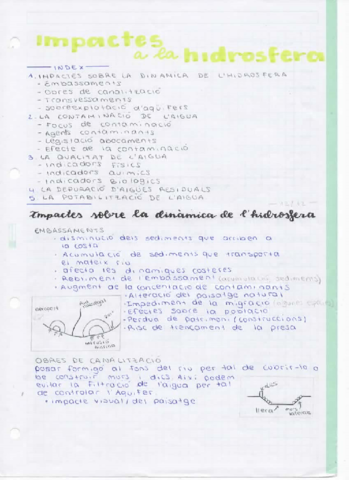 Impactes
a la hidrosfera
INDEX
1. IMPACTES SOBRE LA DINÀMICA DE L'HIDROSFERA
- Embassaments
- Obres de canalització
- Transvassaments
- sobreexplotació d'aqüífers
2. LA CONTAMINACIÓ DE L'AIGUA
- Focus de contaminació
- Agents contaminants
- Legislació abocaments
- Efecte de la contaminació
3. LA QUALITAT DE L'AIGUA
- Indicadors físics
- Indicadors químics
- Indicadors biològics
4. LA DEPURACIÓ D'AIGÜES RESIDUALS
5. LA POTABILITZACIÓ DE L'AIGUA
Impactes sobre la dinàmica de l'hidrosfera
EMBASSAMENTS
- disminució dels sediments que arriben a
la costa
- Acumulació de sediments que transporta
el mateix riu
- afecta les dinàmiques costeres
- Rebliment de l'embassament (acumulació sediments)
- Augment de la concentració de contaminants
- Alteració del paisatge natural
- Impediment de la migració
- Efectes sobre la població
- Pèrdua de patrimoni (construccions)
- Risc de trencament de la presa
OBRES DE CANALITZACIÓ
Posar formigó al fons del riu per tal de cobrir-lo o
bé construir murs i dics. Així podem
evitar la filtració de l'aigua per tal
de controlar l'aqüífer
• impacte visual/del paisatge